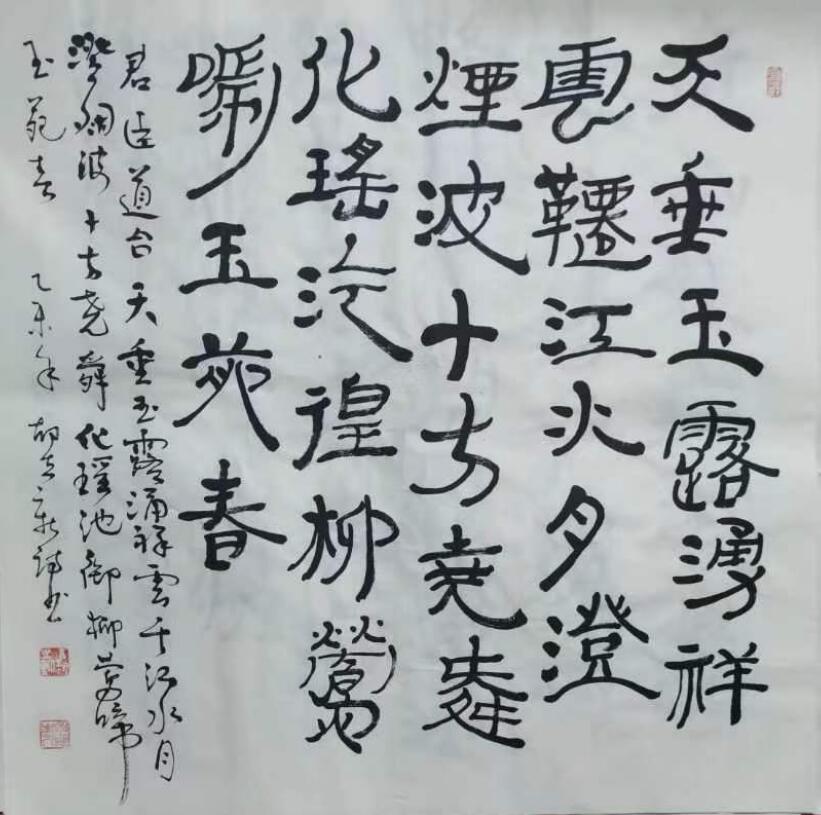 天垂玉露湧祥
雲韆江水月澄
煙波十方堯舜
化瑤池徨柳鶯
啼玉苑春
君臣道合天垂玉露涌祥雲千江水月
澄烟波十方尧舜化瑶池御柳莺啼
玉苑春 乙未年